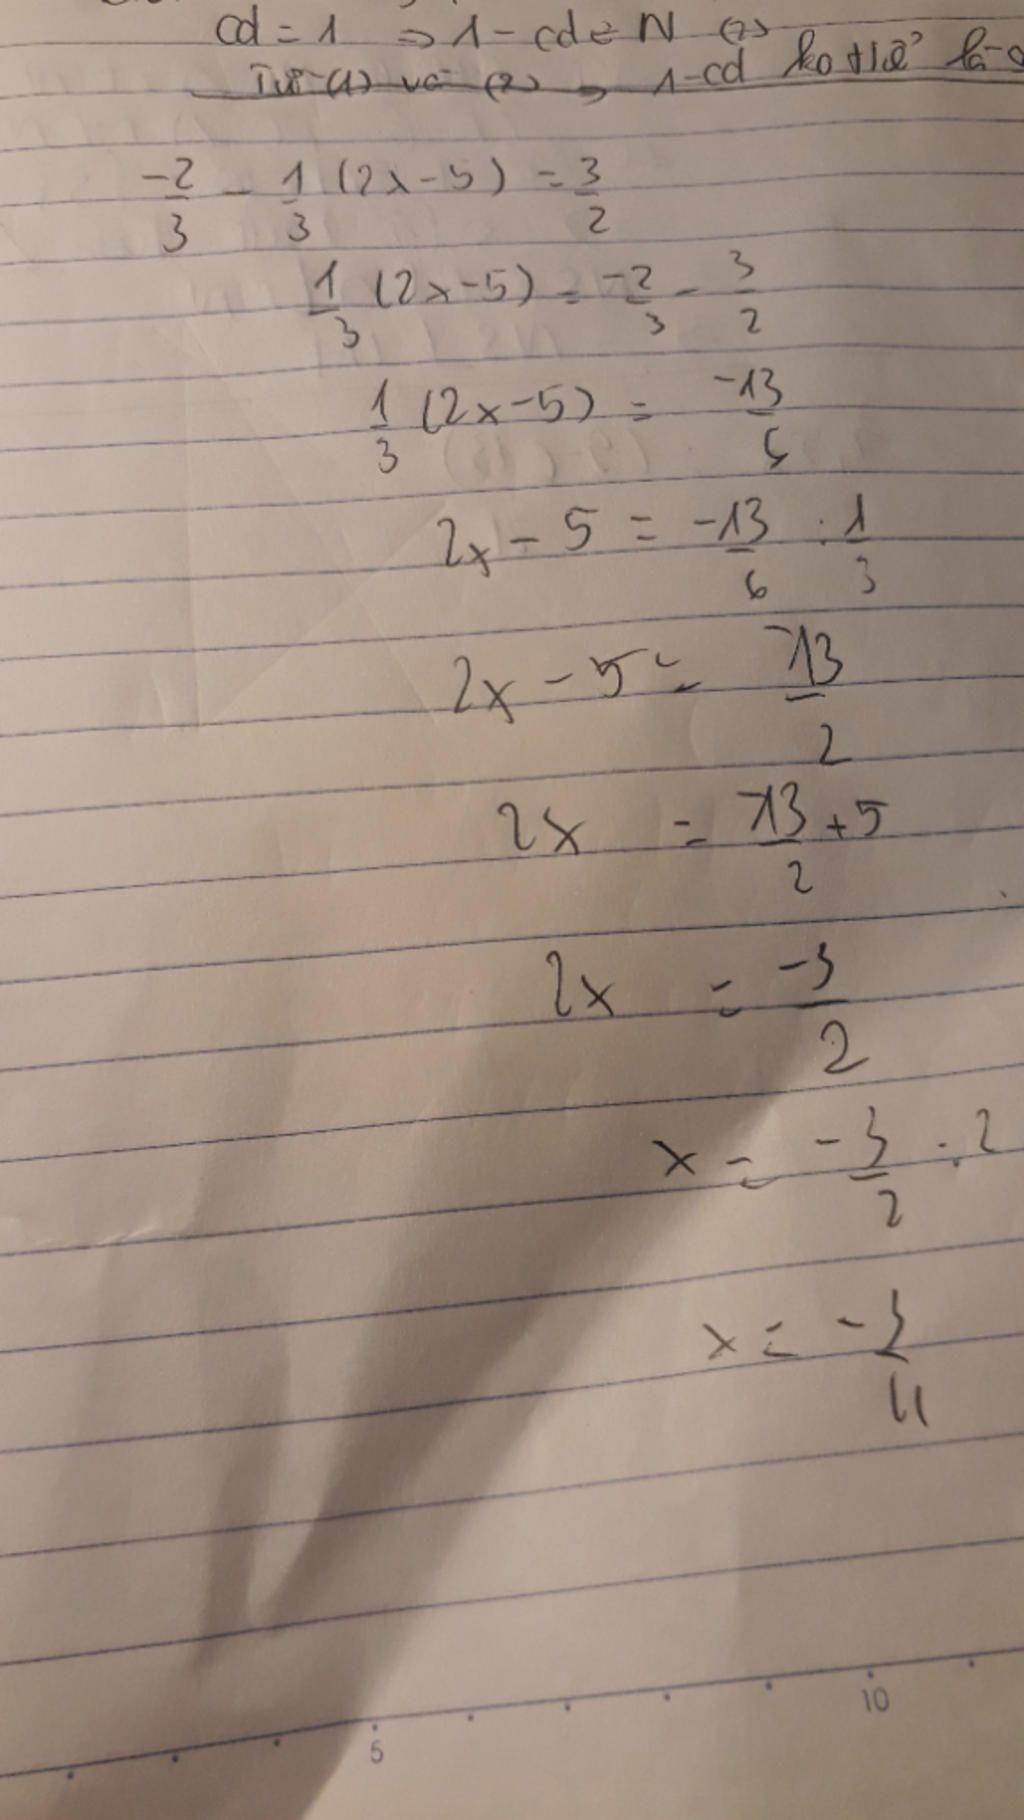 cd = 1 ⇒ 1 - cd ∈ N (2)
Từ (1) và (2) ⇒ 1-cd ko thể là
-2/3 - 1/3 (2x-5) = 3/2
1/3 (2x-5) = -2/3 - 3/2
1/3 (2x-5) = -13/6
2x - 5 = -13/6 : 1/3
2x - 5 = -13/2
2x = -13/2 + 5
2x = -3/2
x = -3/2 : 2
x = -3/4
5
10